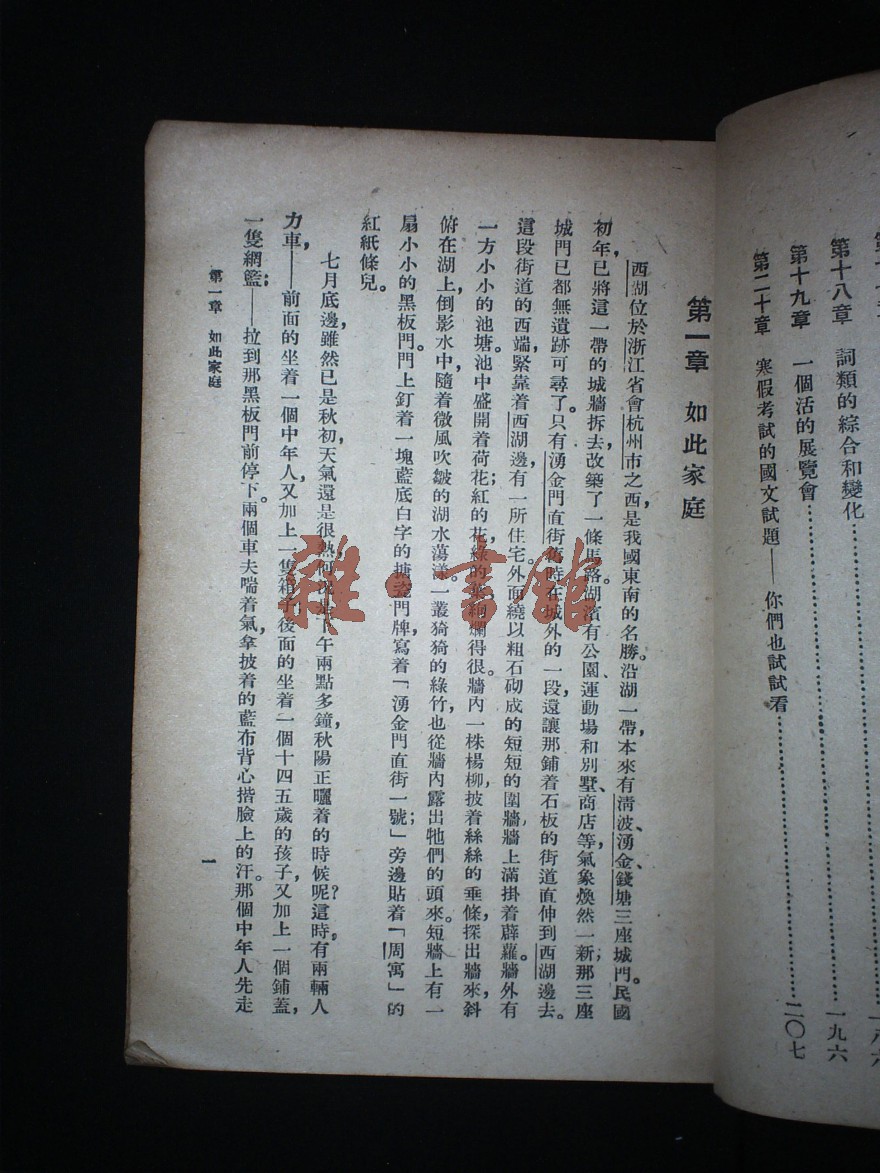 第十八章 詞類的綜合和變化
一九六
第十九章 一個活的展覽會
二〇七
第二十章 寒假考試的國文試題——你們也試試看
第一章 如此家庭
西湖位於浙江省會杭州市之西，是我國東南的名勝。沿湖一帶，本來有清波、湧金、錢塘三座城門。民國
初年，已將這一帶的城牆拆去，改築了一條馬路；湖濱有公園、運動場和別墅、商店等，氣象煥然一新；那三座
城門已都無遺跡可尋了。只有湧金門直街，舊時在城外的一段，還讓那鋪着石板的街道直伸到西湖邊去。
這段街道的西端，緊靠着西湖邊，有一所住宅。外面繞以粗石砌成的短短的圍牆，牆上滿掛着薜蘿。牆外有
一方小小的池塘，池中盛開着荷花；紅的花，綠的葉，絢爛得很。牆內一株楊柳，披着絲絲的垂條，探出牆來，斜
俯在湖上，倒影水中，隨着微風吹皺的湖水蕩漾。一叢猗猗的綠竹，也從牆內露出牠們的頭來。短牆上有一
扇小小的黑板門。門上釘着一塊藍底白字的搪瓷門牌，寫着「湧金門直街一號」；旁邊貼着「周寓」的
紅紙條兒。
七月底邊，雖然已是秋初，天氣還是很熱，何況這下午兩點多鐘，秋陽正曬着的時候呢？這時，有兩輛人
力車，——前面的坐着一個中年人，又加上一隻箱子；後面的坐着一個十四五歲的孩子，又加上一個鋪蓋，
一隻網籃；——拉到那黑板門前停下。兩個車夫喘着氣，拿披着的藍布背心揩臉上的汗。那個中年人先走
第一章 如此家庭
一
雜·書館